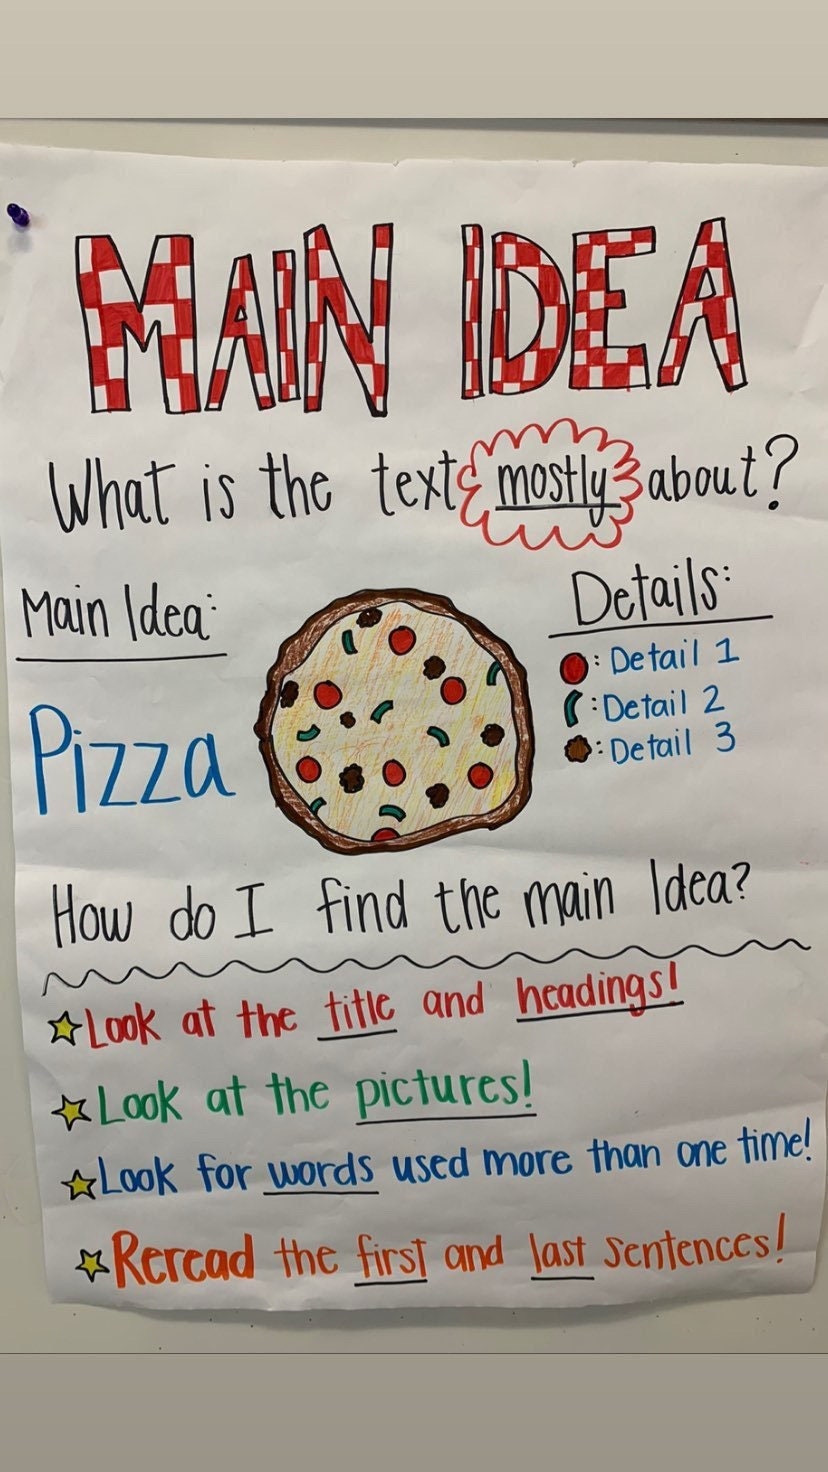 MAIN IDEA
What is the text mostly about?
Main Idea:
Pizza
Details:
: Detail 1
: Detail 2
: Detail 3
How do I find the main Idea?
Look at the title and headings!
Look at the pictures!
Look for words used more than one time!
Reread the first and last sentences!